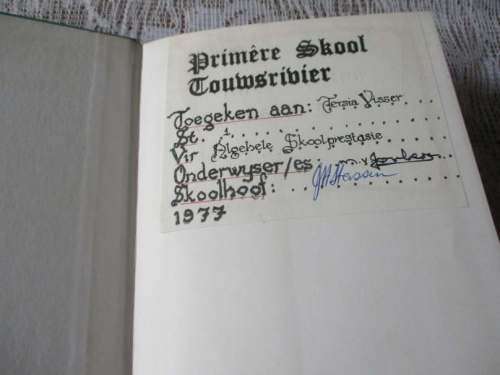 Primêre Skool
Touwsrivier
Toegeken aan: Tersia Visser
St. 1
Vir Algehele Skoolprestasie
Onderwyser/es:
Skoolhoof:
1977